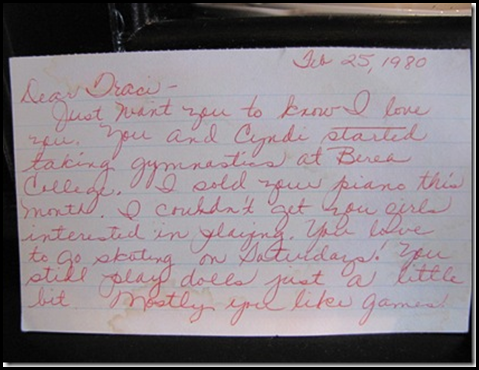 Feb 25, 1980
Dear Traci -
Just want you to know I love
you. You and Cyndi started
taking gymnastics at Berea
College. I sold your piano this
month. I couldn't get you girls
interested in playing. You love
to go skating on Saturdays! You
still play dolls just a little
bit. Mostly you like games!